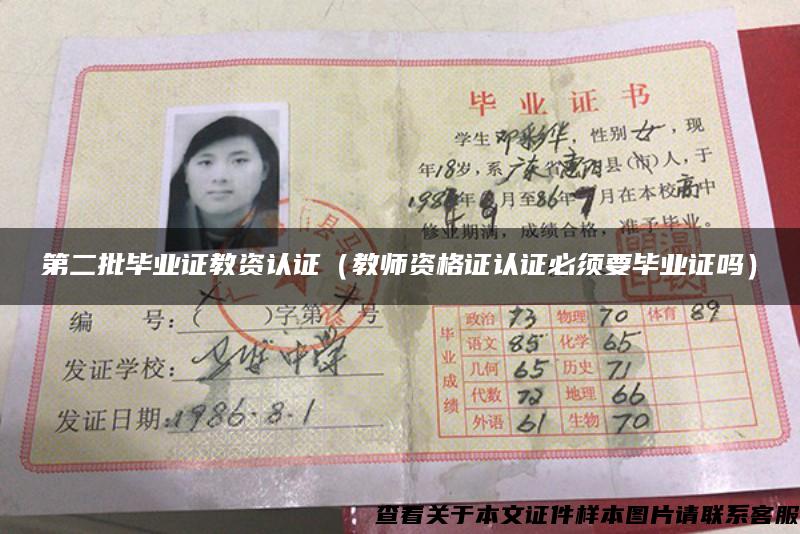 毕业证书
学生邓彩华，性别女，现
年18岁，系广东省惠阳县(市)人，于
198 年9月至86年7月在本校高中
修业期满，成绩合格，准予毕业。
第二批毕业证教资认证（教师资格证认证必须要毕业证吗）
编 号:( )字第 号
发证学校: 中学
发证日期:1986.8.1
毕业成绩
政治 73 物理 70 体育 89
语文 85 化学 65
几何 65 历史 71
代数 72 地理 66
外语 61 生物 70
查看关于本文证件样本图片请联系客服